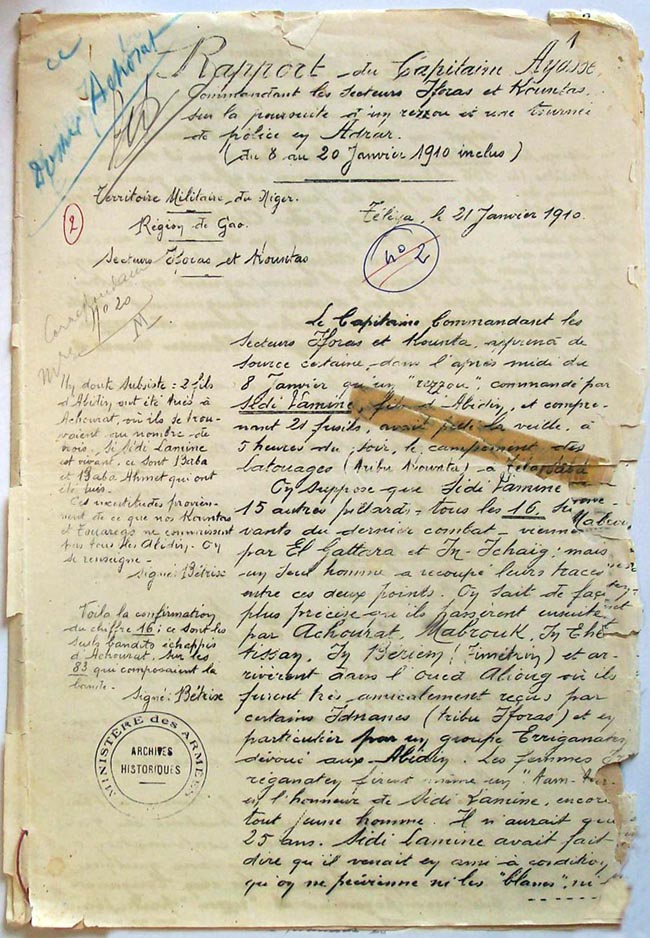 Dossier Achorat
1
Rapport du Capitaine Ayasse,
Commandant les secteurs Iforas et Kountas.
sur la poursuite d'un rezzou et une tournée
de police en Adrar.
(du 8 au 20 Janvier 1910 inclus)
Territoire Militaire du Niger.
Région de Gao.
Secteurs Iforas et Kountas
2
Téléya, le 21 Janvier 1910.
n° 2
Correspondance
N° 20
M
Le Capitaine Commandant les
secteurs Iforas et Kounta, apprend de
source certaine, dans l'après midi du
8 Janvier qu'un "rezzou", commandé par
Sidi Lamine, fils d'Abidin, et compre-
nant 21 fusils, avait pillé la veille, à
5 heures du soir, le campement des
latouages (tribu Kounta) à
On suppose que Sidi Lamine
15 autres pillards - tous les 16,
vants du dernier combat - viennent
par El Gattara et In-Tchaig; mais
un seul homme a recoupé leurs traces
entre ces deux points. On sait de faç
plus précise qu'ils passèrent ensuite
par Achourat, Mabrouk, In Ehé
tissan, In Beriem (Timétrin) et ar-
rivèrent dans l'Oued Alioug où ils
furent très amicalement reçus par
certains Idnanes (tribu Iforas) et en
particulier par un groupe Erriganaten
dévoué aux Abidin. Les femmes
réganaten firent même un "tam-tam"
en l'honneur de Sidi Lamine, encore
tout jeune homme. Il n'aurait que
25 ans. Sidi Lamine avait fait
dire qu'il venait en ami à condition
qu'on ne prévienne ni les "blancs", ni
Un doute subsiste = 2 fils
d'Abidin ont été tués à
Achourat, où ils se trou-
vaient au nombre de
trois. Si Sidi Lamine
est vivant, ce sont Baba
et Baba Ahmet qui ont
été tués.
Ces incertitudes provien-
nent de ce que nos Kountas
et Touaregs ne connaissent
pas tous les Abidin. On
se renseigne.
Signé: Bétrix
Voilà la confirmation
du chiffre 16; ce sont les
seuls bandits échappés
d'Achourat, sur les
83 qui composaient la
bande.
Signé: Bétrix
MINISTÈRE des ARMÉES
ARCHIVES
HISTORIQUES